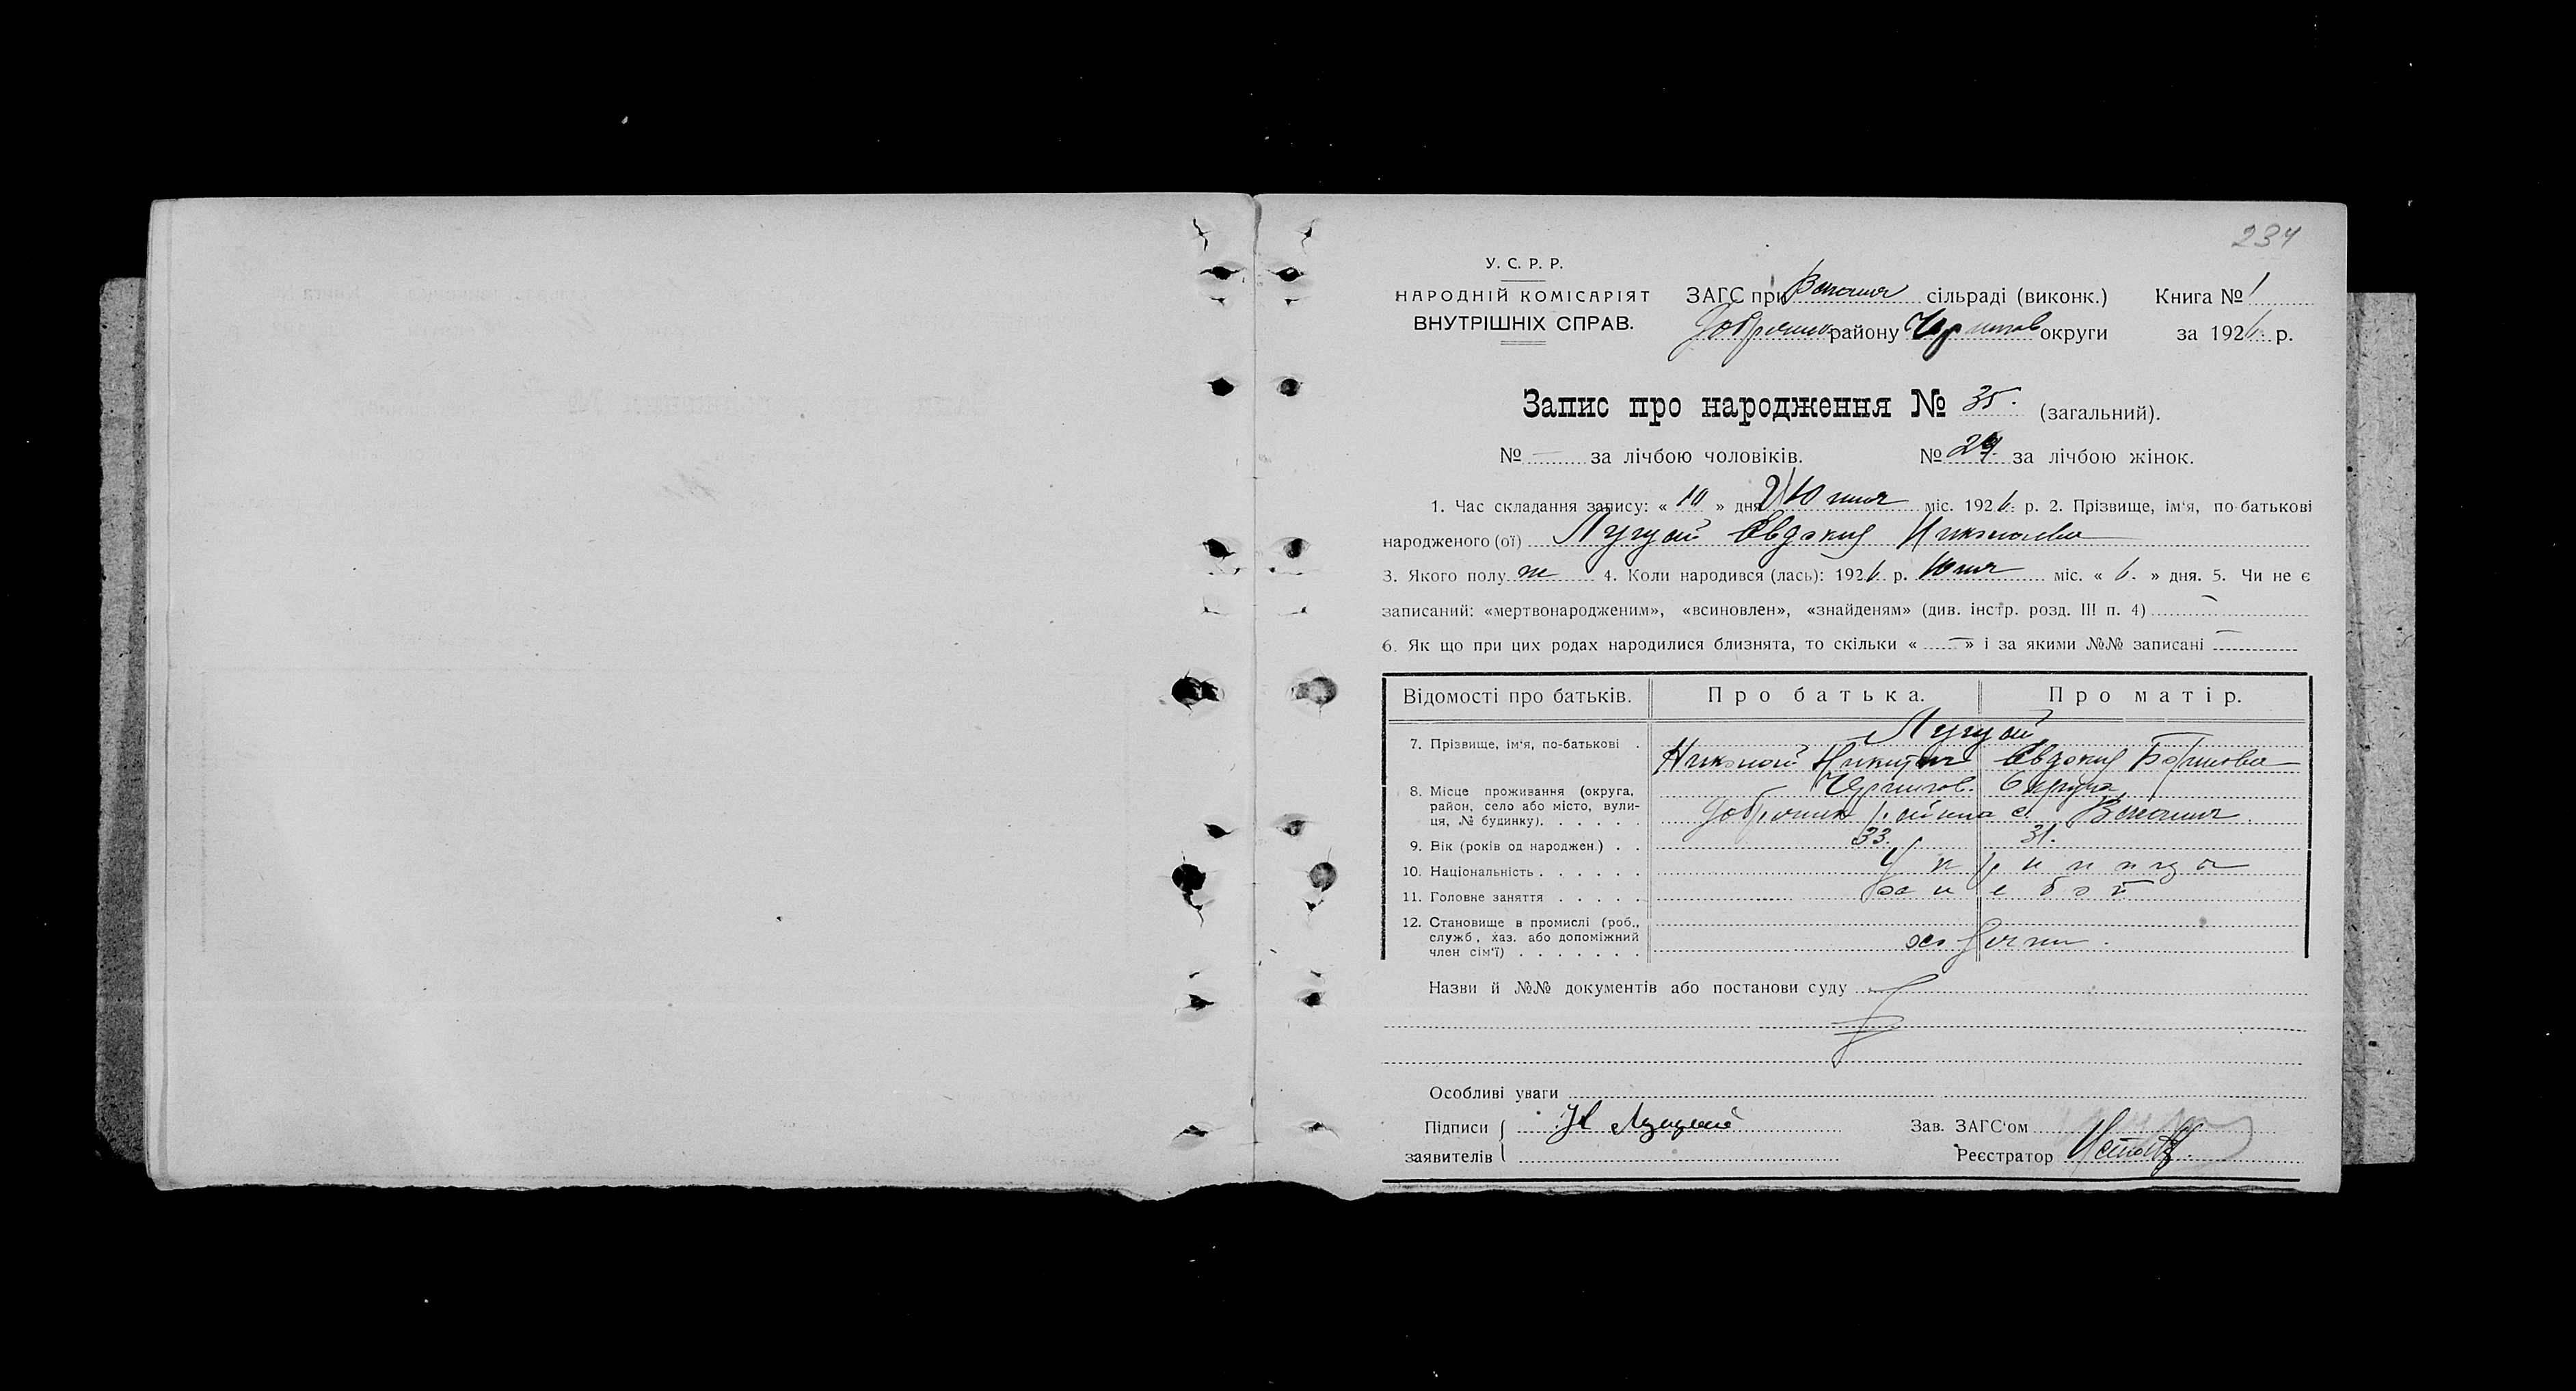 234
У. С. Р. Р.
НАРОДНІЙ КОМІСАРІЯТ
ВНУТРІШНІХ СПРАВ.
ЗАГС при сільраді (виконк.) Книга № 1
району округи за 1926 р.
Запис про народження № 35. (загальний).
№ — за лічбою чоловіків. № 29. за лічбою жінок.
1. Час складання запису: « 10 » дня міс. 1926. р. 2. Прізвище, ім'я, по-батькові
народженого (ої) Лугуай Овдокия Николаевна
3. Якого полу ж 4. Коли народився (лась): 1926. р. міс. « 6. » дня. 5. Чи не є
записаний: «мертвонародженим», «всиновлен», «знайденям» (див. інстр. розд. III п. 4) —
6. Як що при цих родах народилися близнята, то скільки « — » і за якими №№ записані —
Відомості про батьків. Про батька. Про матір.
7. Прізвище, ім'я, по-батькові .
Николай Никитич Овдокия
8. Місце проживання (округа, Чернигов. Округа,
район, село або місто, вули-
ця, № будинку). . . . . .
9. Вік (років од народжен.) . . 33. 31.
10. Національність . . . . . .
11. Головне заняття . . . . . хлебоп
12. Становище в промислі (роб.,
служб, хаз. або допоміжний
член сім'ї) . . . . . . .
Назви й №№ документів або постанови суду
Особливі уваги
Підписи Н Зав. ЗАГС'ом
заявителів Реєстратор